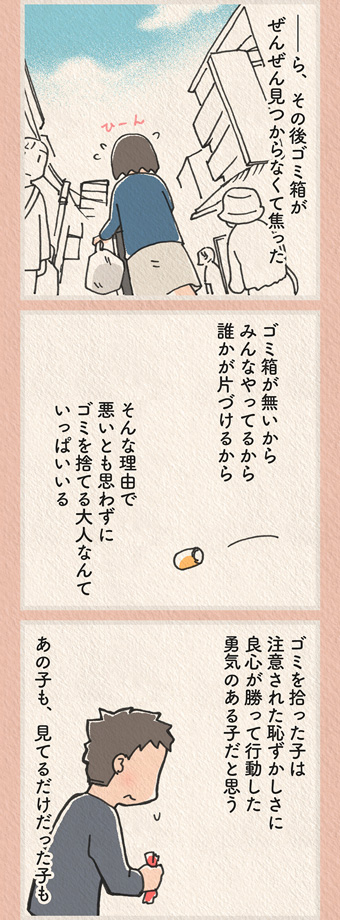 ――ら、その後ゴミ箱が
ぜんぜん見つからなくて焦った
ひーん
ゴミ箱が無いから
みんなやってるから
誰かが片づけるから
そんな理由で
悪いとも思わずに
ゴミを捨てる大人なんて
いっぱいいる
ゴミを拾った子は
注意された恥ずかしさに
良心が勝って行動した
勇気のある子だと思う
あの子も、見てるだけだった子も